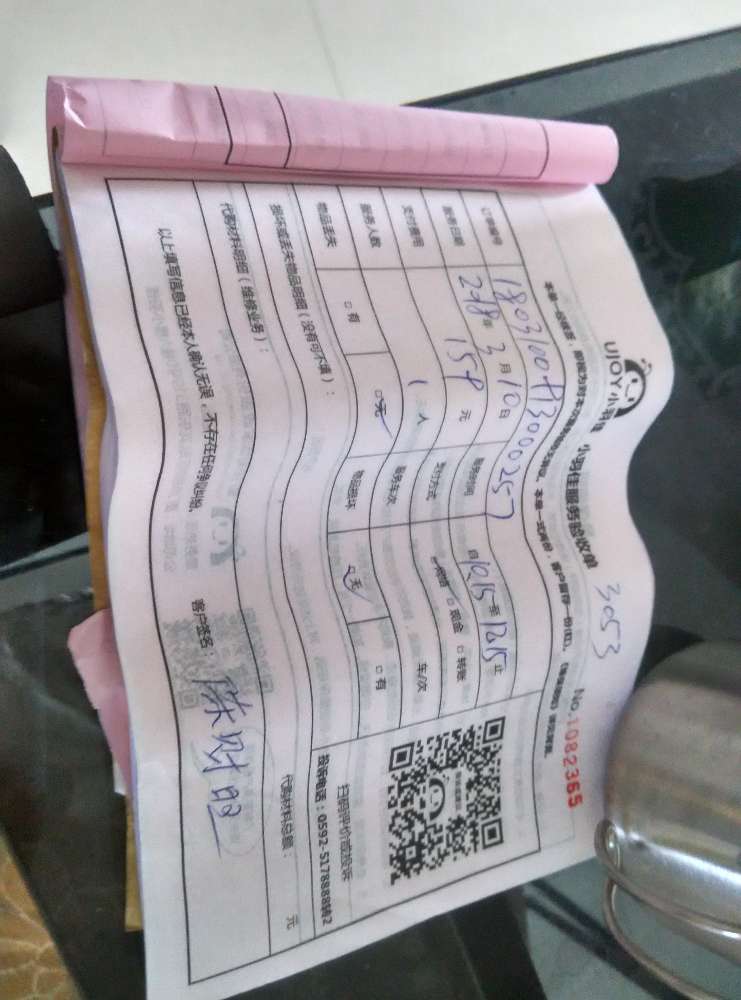 UJOY小羽佳 小羽佳服务验收单
3053
No.1082365
订单编号 180310
服务日期 3月10日 服务时间 自10:15至12:15止
支付费用 158元 支付方式 □现金 □转账
服务人数 1人 服务车次 车/次
物品丢失 □有 □无 物品损坏 □无 □有
损坏或丢失物品明细（没有可不填）：
代购材料明细（维修业务）：
代购材料总额： 元
扫码评价或投诉
投诉电话：0592-5178888转2
以上填写信息已经本人确认无误，不存在任何争议纠纷。
客户签名：